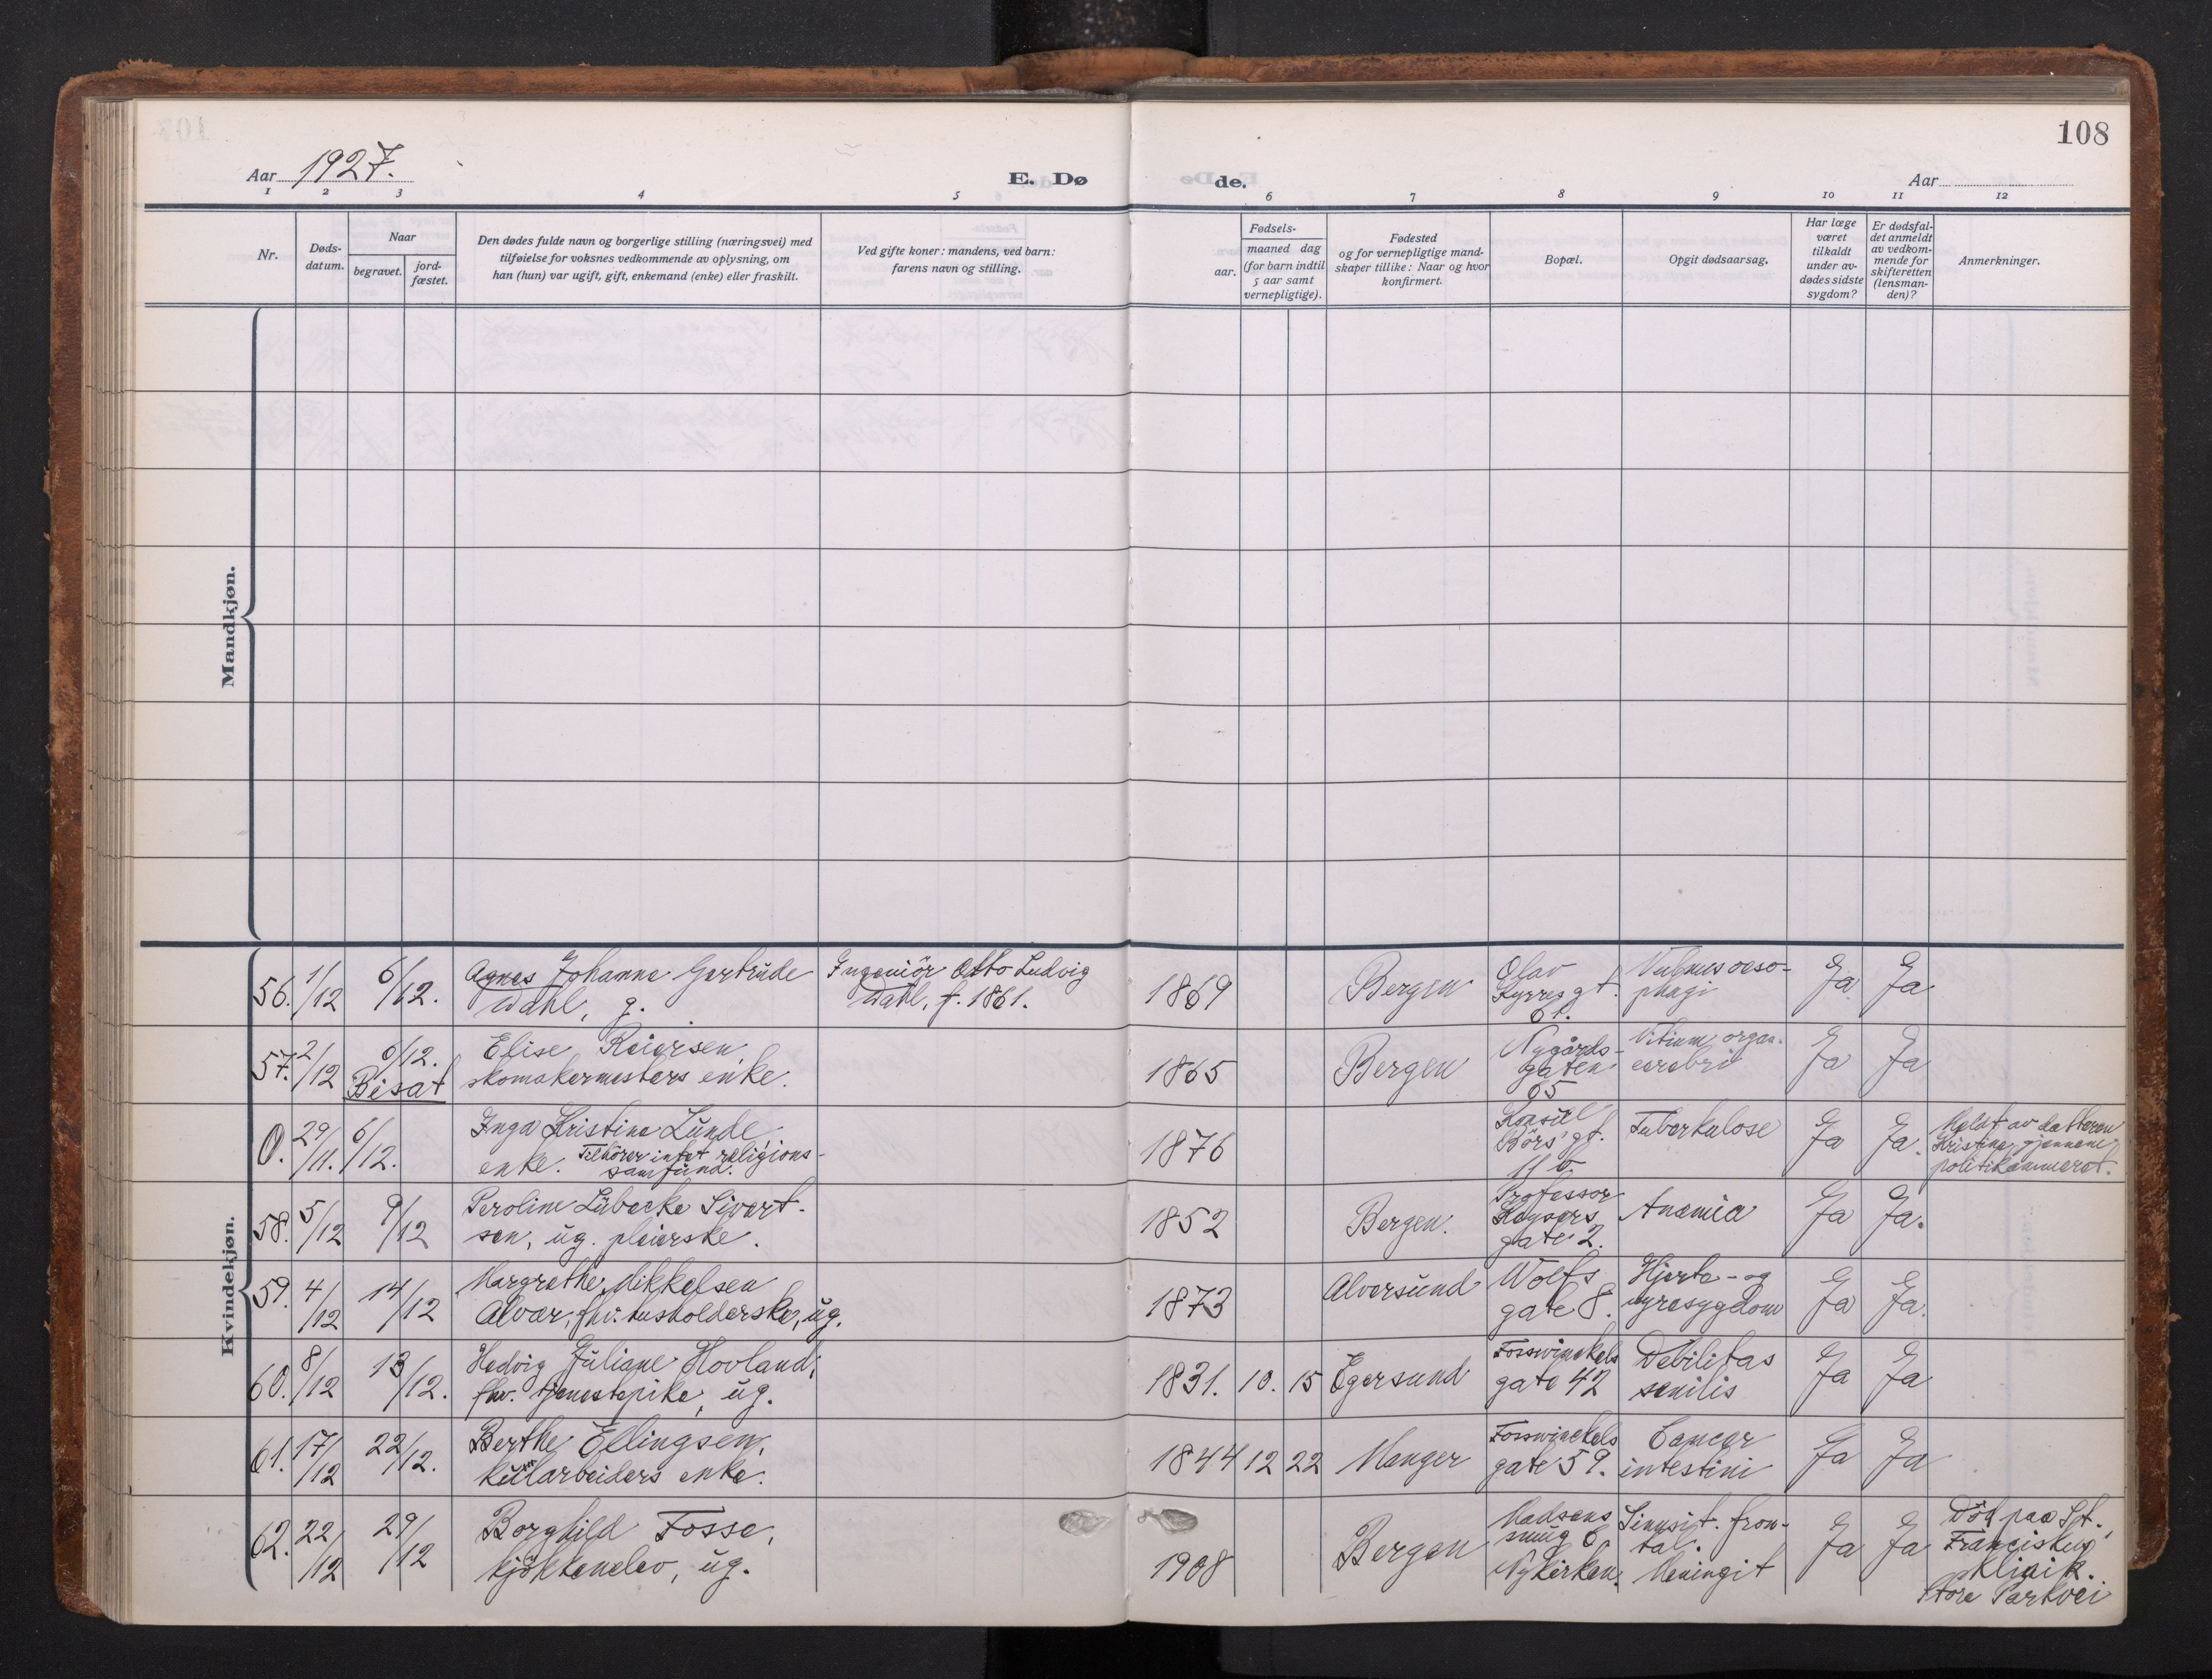 108
Aar 1927.
E. Døde.
Aar
1 2 3 4 5 6 7 8 9 10 11 12
Nr.
Døds-
datum.
Naar
begravet.
jord-
fæstet.
Den dødes fulde navn og borgerlige stilling (næringsvei) med
tilføielse for voksnes vedkommende av oplysning, om
han (hun) var ugift, gift, enkemand (enke) eller fraskilt.
Ved gifte koner: mandens, ved barn:
farens navn og stilling.
Fødsels-
aar.
maaned dag
(for barn indtil
5 aar samt
vernepligtige).
Fødested
og for vernepligtige mand-
skaper tillike: Naar og hvor
konfirmert.
Bopæl.
Opgit dødsaarsag.
Har læge
været
tilkaldt
under av-
dødes sidste
sygdom?
Er dødsfal-
det anmeldt
av vedkom-
mende for
skifteretten
(lensman-
den)?
Anmerkninger.
Mandkjøn.
Kvindekjøn.
56. 1/12 6/12.
Agnes Johanne Gertrude
Dahl, g.
Ingeniör Otto Ludvig
Dahl, f. 1861.
1869
Bergen
Olav
Kyrresgt.
61.
oeso-
phagi
Ja Ja
57. 2/12 6/12.
Bisat
Elise Reiersen,
skomakermesters enke.
1865
Bergen
Nygårds-
gaten
65
Vitium organ.
cerebri
Ja Ja
0. 29/11. 6/12.
Inga Kristine Lunde,
enke. Tilhörer intet religions-
samfund.
1876
Konsul
Börs' gt.
Tuberkulose
Ja Ja.
Meldt av datteren
Kristine, gjennem
politikammeret.
58. 5/12 9/12
Peroline Lübecke Sivert-
sen, ug. pleierske.
1852
Bergen.
Professor
Keysers
gate 2.
Anæmia
Ja Ja.
59. 4/12 14/12
Margrethe Mikkelsen
Alvær, fhv. husholderske, ug.
1873
Alversund
Wolfs
gate 8.
Hjerte- og
nyresygdom
Ja Ja.
60. 8/12 13/12.
Hedvig Juliane Hovland,
fhv. tjenestepike, ug.
1831. 10. 15
Egersund
Fosswinckels
gate 42
Debilitas
senilis
Ja Ja
61. 17/12 22/12.
Berthe Ellingsen,
kullarbeiders enke.
1844 12 22
Manger
Fosswinckels
gate 59.
Cancer
intestini
Ja Ja
62. 22/12 29/12
Borghild Fosse,
kjökkenelev, ug.
1908
Bergen
Madsens
smug 6
Nykirken.
Sinusit. fron-
tal.
Meningit
Ja Ja
Död paa St.
Franciskus'
Klinik.
Store Parkvei